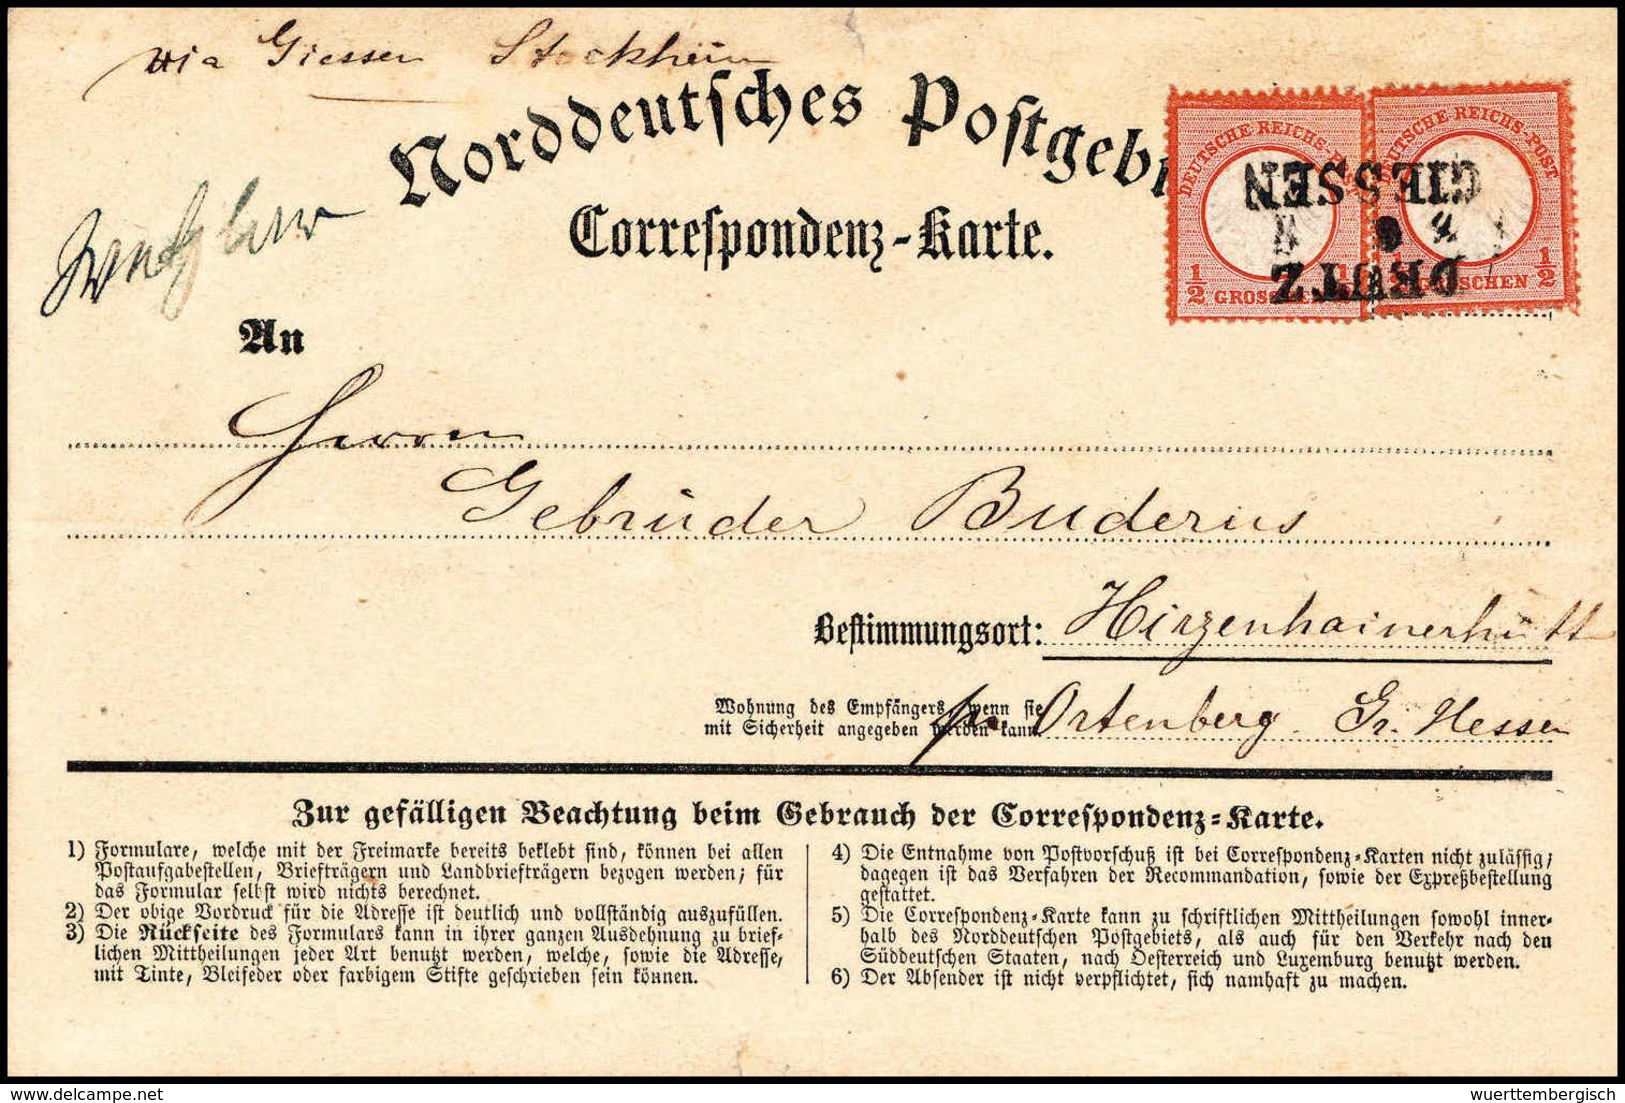 via Giessen Stockheim
Norddeutsches Postgebi
Correspondenz-Karte.
DEUTSCHE REICHS-POST
1/2 GROSCHEN
DEUTSCHE REICHS-POST
1/2 GROSCHEN 1/2
GIESSEN
DEUTZ
An
Herrn
Gebrüder Buderus
Bestimmungsort: Hirzenhainerhütt
Wohnung des Empfängers, wenn sie
mit Sicherheit angegeben werden kann.
pr. Ortenberg Gr. Hessen
Zur gefälligen Beachtung beim Gebrauch der Correspondenz-Karte.
1) Formulare, welche mit der Freimarke bereits beklebt sind, können bei allen
Postaufgabestellen, Briefträgern und Landbriefträgern bezogen werden; für
das Formular selbst wird nichts berechnet.
2) Der obige Vordruck für die Adresse ist deutlich und vollständig auszufüllen.
3) Die Rückseite des Formulars kann in ihrer ganzen Ausdehnung zu brief-
lichen Mittheilungen jeder Art benutzt werden, welche, sowie die Adresse,
mit Tinte, Bleifeder oder farbigem Stifte geschrieben sein können.
4) Die Entnahme von Postvorschuß ist bei Correspondenz-Karten nicht zulässig;
dagegen ist das Verfahren der Recommandation, sowie der Expreßbestellung
gestattet.
5) Die Correspondenz-Karte kann zu schriftlichen Mittheilungen sowohl inner-
halb des Norddeutschen Postgebiets, als auch für den Verkehr nach den
Süddeutschen Staaten, nach Oesterreich und Luxemburg benutzt werden.
6) Der Absender ist nicht verpflichtet, sich namhaft zu machen.
wuerttembergisch